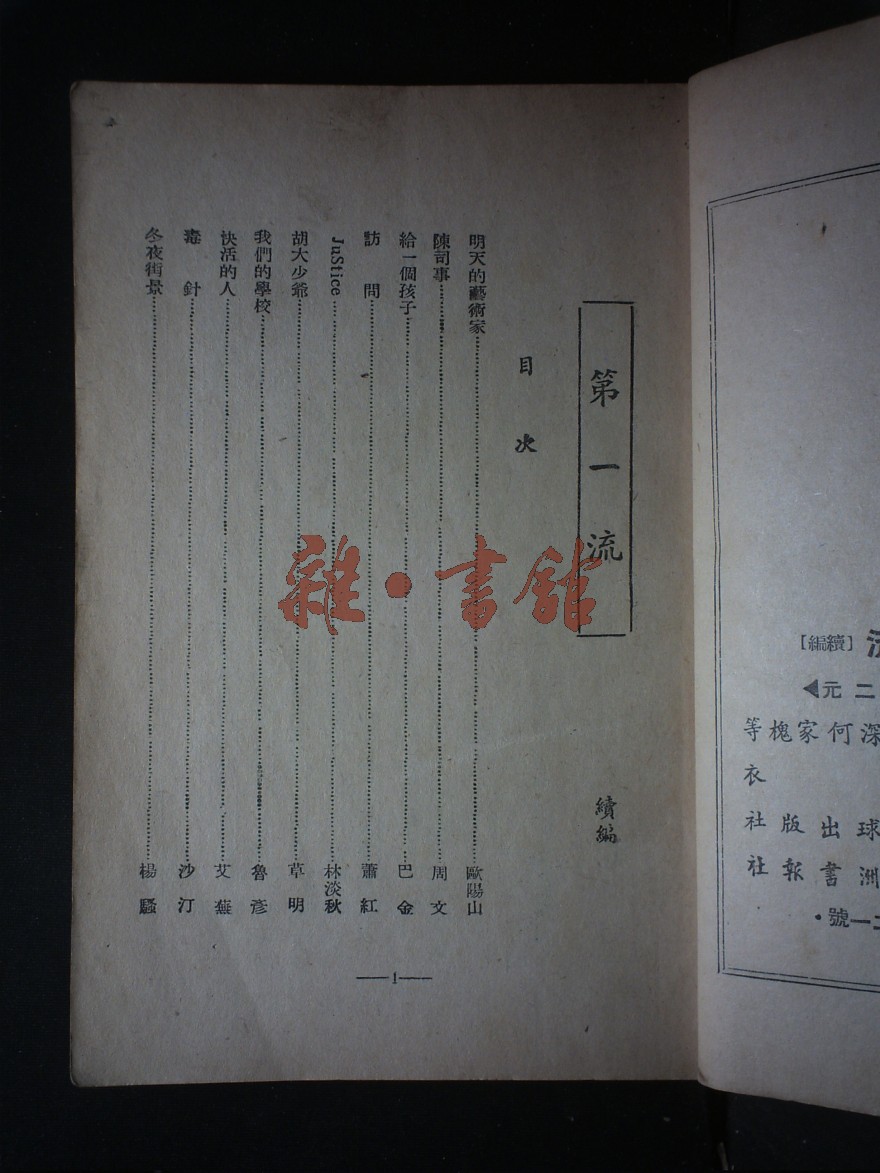 第一流
續編
目次
明天的藝術家 歐陽山
陳司事 周文
給一個孩子 巴金
訪問 蕭紅
JuStice 林淡秋
胡大少爺 草明
我們的學校 魯彥
快活的人 艾蕪
毒針 沙汀
冬夜街景 楊騷
—1—
雜·書館
[續編]
二元◀
深何家槐等
衣
球出版社
洲書報社
一號·